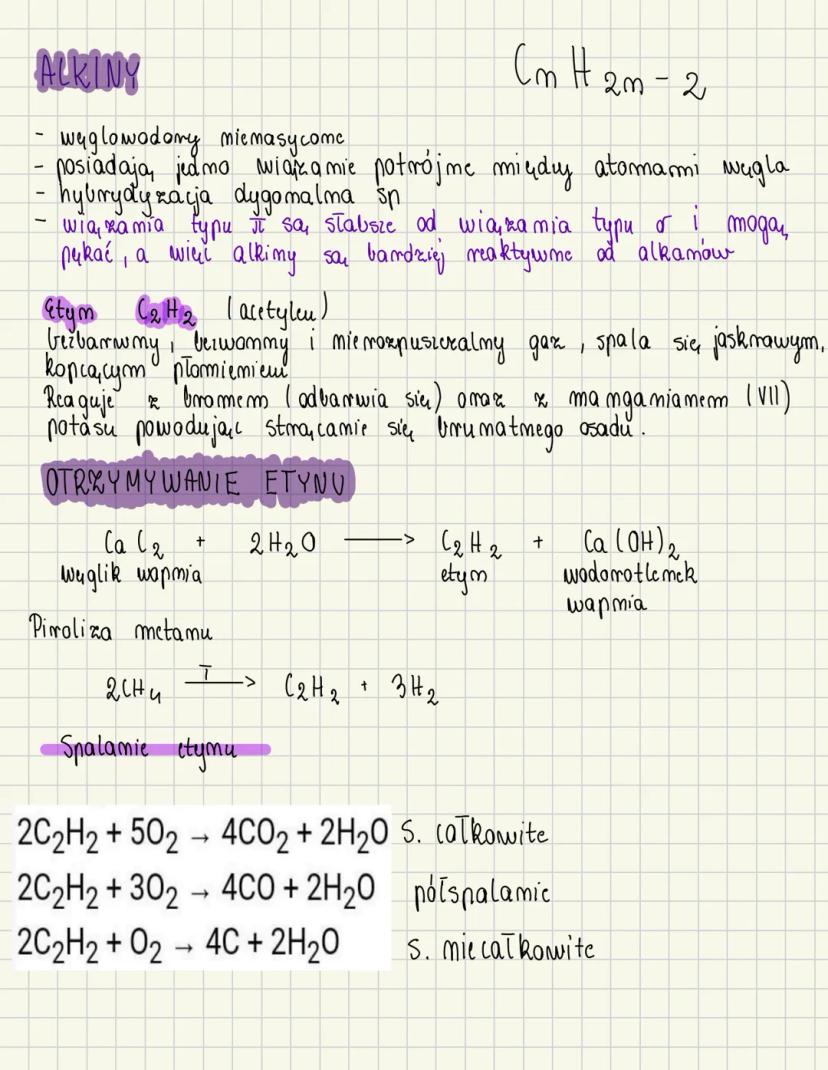 ALKINY
CnH2n-2
- węglowodory nienasycone
- posiadają jedno wiązanie potrójne między atomami węgla
- hybrydyzacja dygonalna sp
- wiązania typu π są słabsze od wiązania typu σ i mogą
pękać, a więc alkiny są bardziej reaktywne od alkanów
Etyn C2H2 (acetylen)
bezbarwny, bezwonny i nierozpuszczalny gaz, spala się jaskrawym,
kopcącym płomieniem
Reaguje z bromem (odbarwia się) oraz z manganianem (VII)
potasu powodując strącanie się brunatnego osadu.
OTRZYMYWANIE ETYNU
CaC2 + 2H2O ⟶ C2H2 + Ca(OH)2
węglik wapnia etyn wodorotlenek
wapnia
Piroliza metanu
2CH4 T⟶ C2H2 + 3H2
Spalanie etynu
2C₂H₂ + 5O₂ → 4CO₂ + 2H₂O s. całkowite
2C₂H₂ + 3O₂ → 4CO + 2H₂O półspalanie
2C₂H₂ + O₂ → 4C + 2H₂O s. niecałkowite